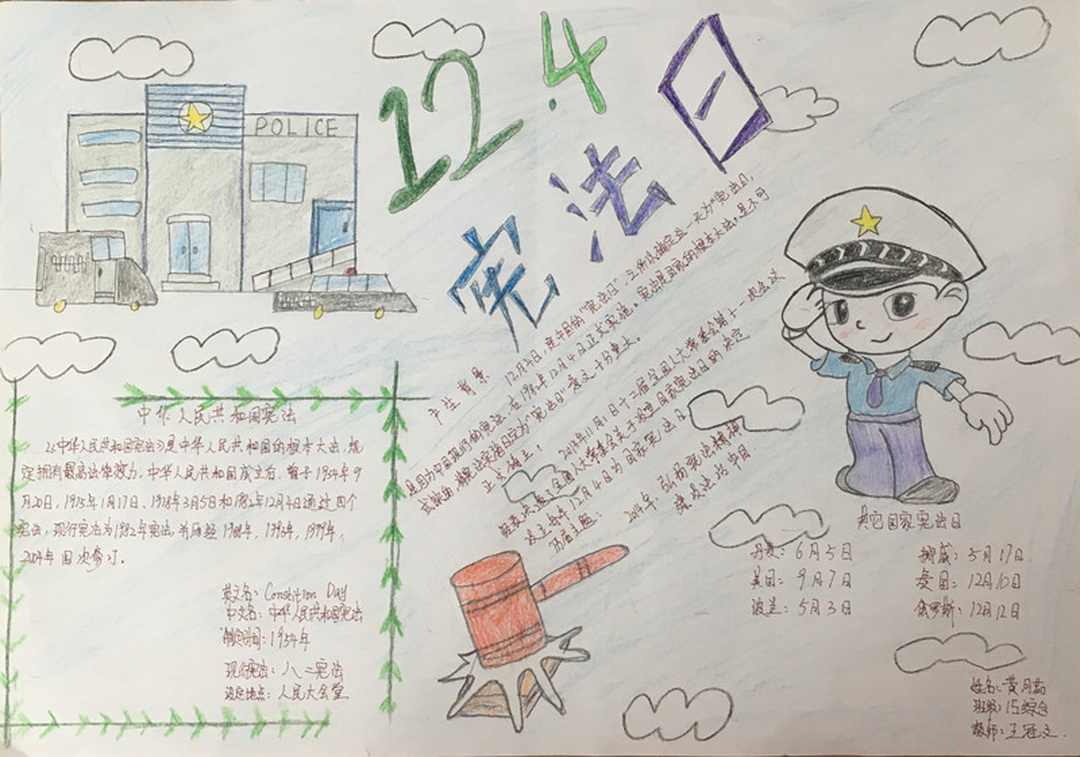 12.4
宪法日
POLICE
中华人民共和国宪法
《中华人民共和国宪法》是中华人民共和国的根本大法，规
定拥有最高法律效力，中华人民共和国成立后，曾于1954年9
月20日，1975年1月17日，1978年3月5日和1982年12月4日通过四个
宪法，现行宪法为1982年宪法，并历经1988年，1993年，1999年，
2004年四次修订。
英文名：Constitiron Day
中文名：中华人民共和国宪法
制定时间：1954年
现行宪法：八二宪法
设定地点：人民大会堂
产生背景
12月4日，是中国的"宪法日"，之所以确定这一天为"宪法日，
是因为中国现行的宪法，在1982年12月4日正式实施，宪法是国家的根本大法，是不可
意义十分重大。
正式确立：
2014年11月1日十二届全国人大常委会第十一次会议
设立每年12月4日为国家宪法日
历届主题：
2014年 弘扬宪法精神
其它国家宪法日
丹麦：6月5日
挪威：5月17日
美国：9月7日
泰国：12月10日
波兰：5月3日
俄罗斯：12月12日
姓名：黄月
班级：15综合
教师：王冠文